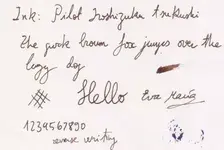 Ink: Pilot Iroshizuku tsukushi
The quick brown fox jumps over the
lazy dog
Hello Eva Maria
1234567890
reverse writing